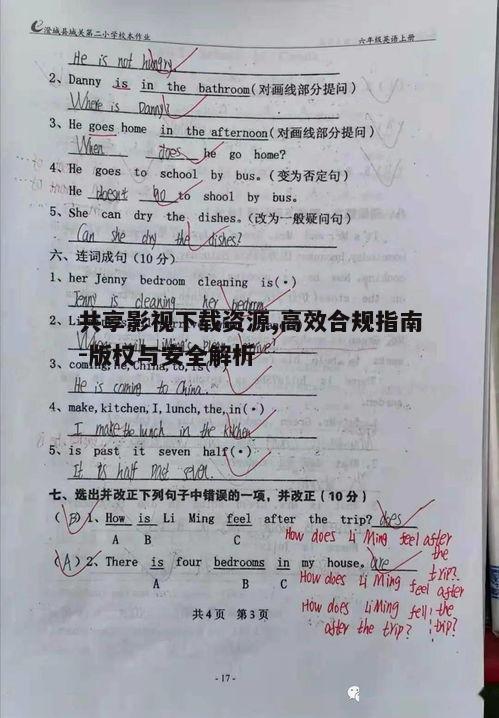 澄城县城关第二小学校本作业 六年级英语上册
He is not hungry
2、Danny is in the bathroom(对画线部分提问)
Where is Danny?
3、He goes home in the afternoon(对画线部分提问)
When does he go home?
4、He goes to school by bus.(变为否定句)
He doesn't go to shool by bus.
5、She can dry the dishes.(改为一般疑问句)
Can she dry the dishes?
六、连词成句(10分)
1、her Jenny bedroom cleaning is(·)
Jenny is cleaning her bedroom
共享影视下载资源,高效合规指南
-版权与安全解析
2、Li
3、coming,He,China,to,is(
He is coming to China.
4、make,kitchen,I,lunch,the,in(·)
I make the lunch in the kitchen
5、is past it seven half(·)
It is half past seven.
七、选出并改正下列句子中错误的一项,并改正(10分)
(B)1、How is Li Ming feel after the trip? does
A B C
How does Li Ming feel after the trip?
(A)2、There is four bedrooms in my house. are
A B C
How does Li Ming feel after the trip?
How does Li Ming fell after the trip?
共4页 第3页
-17-